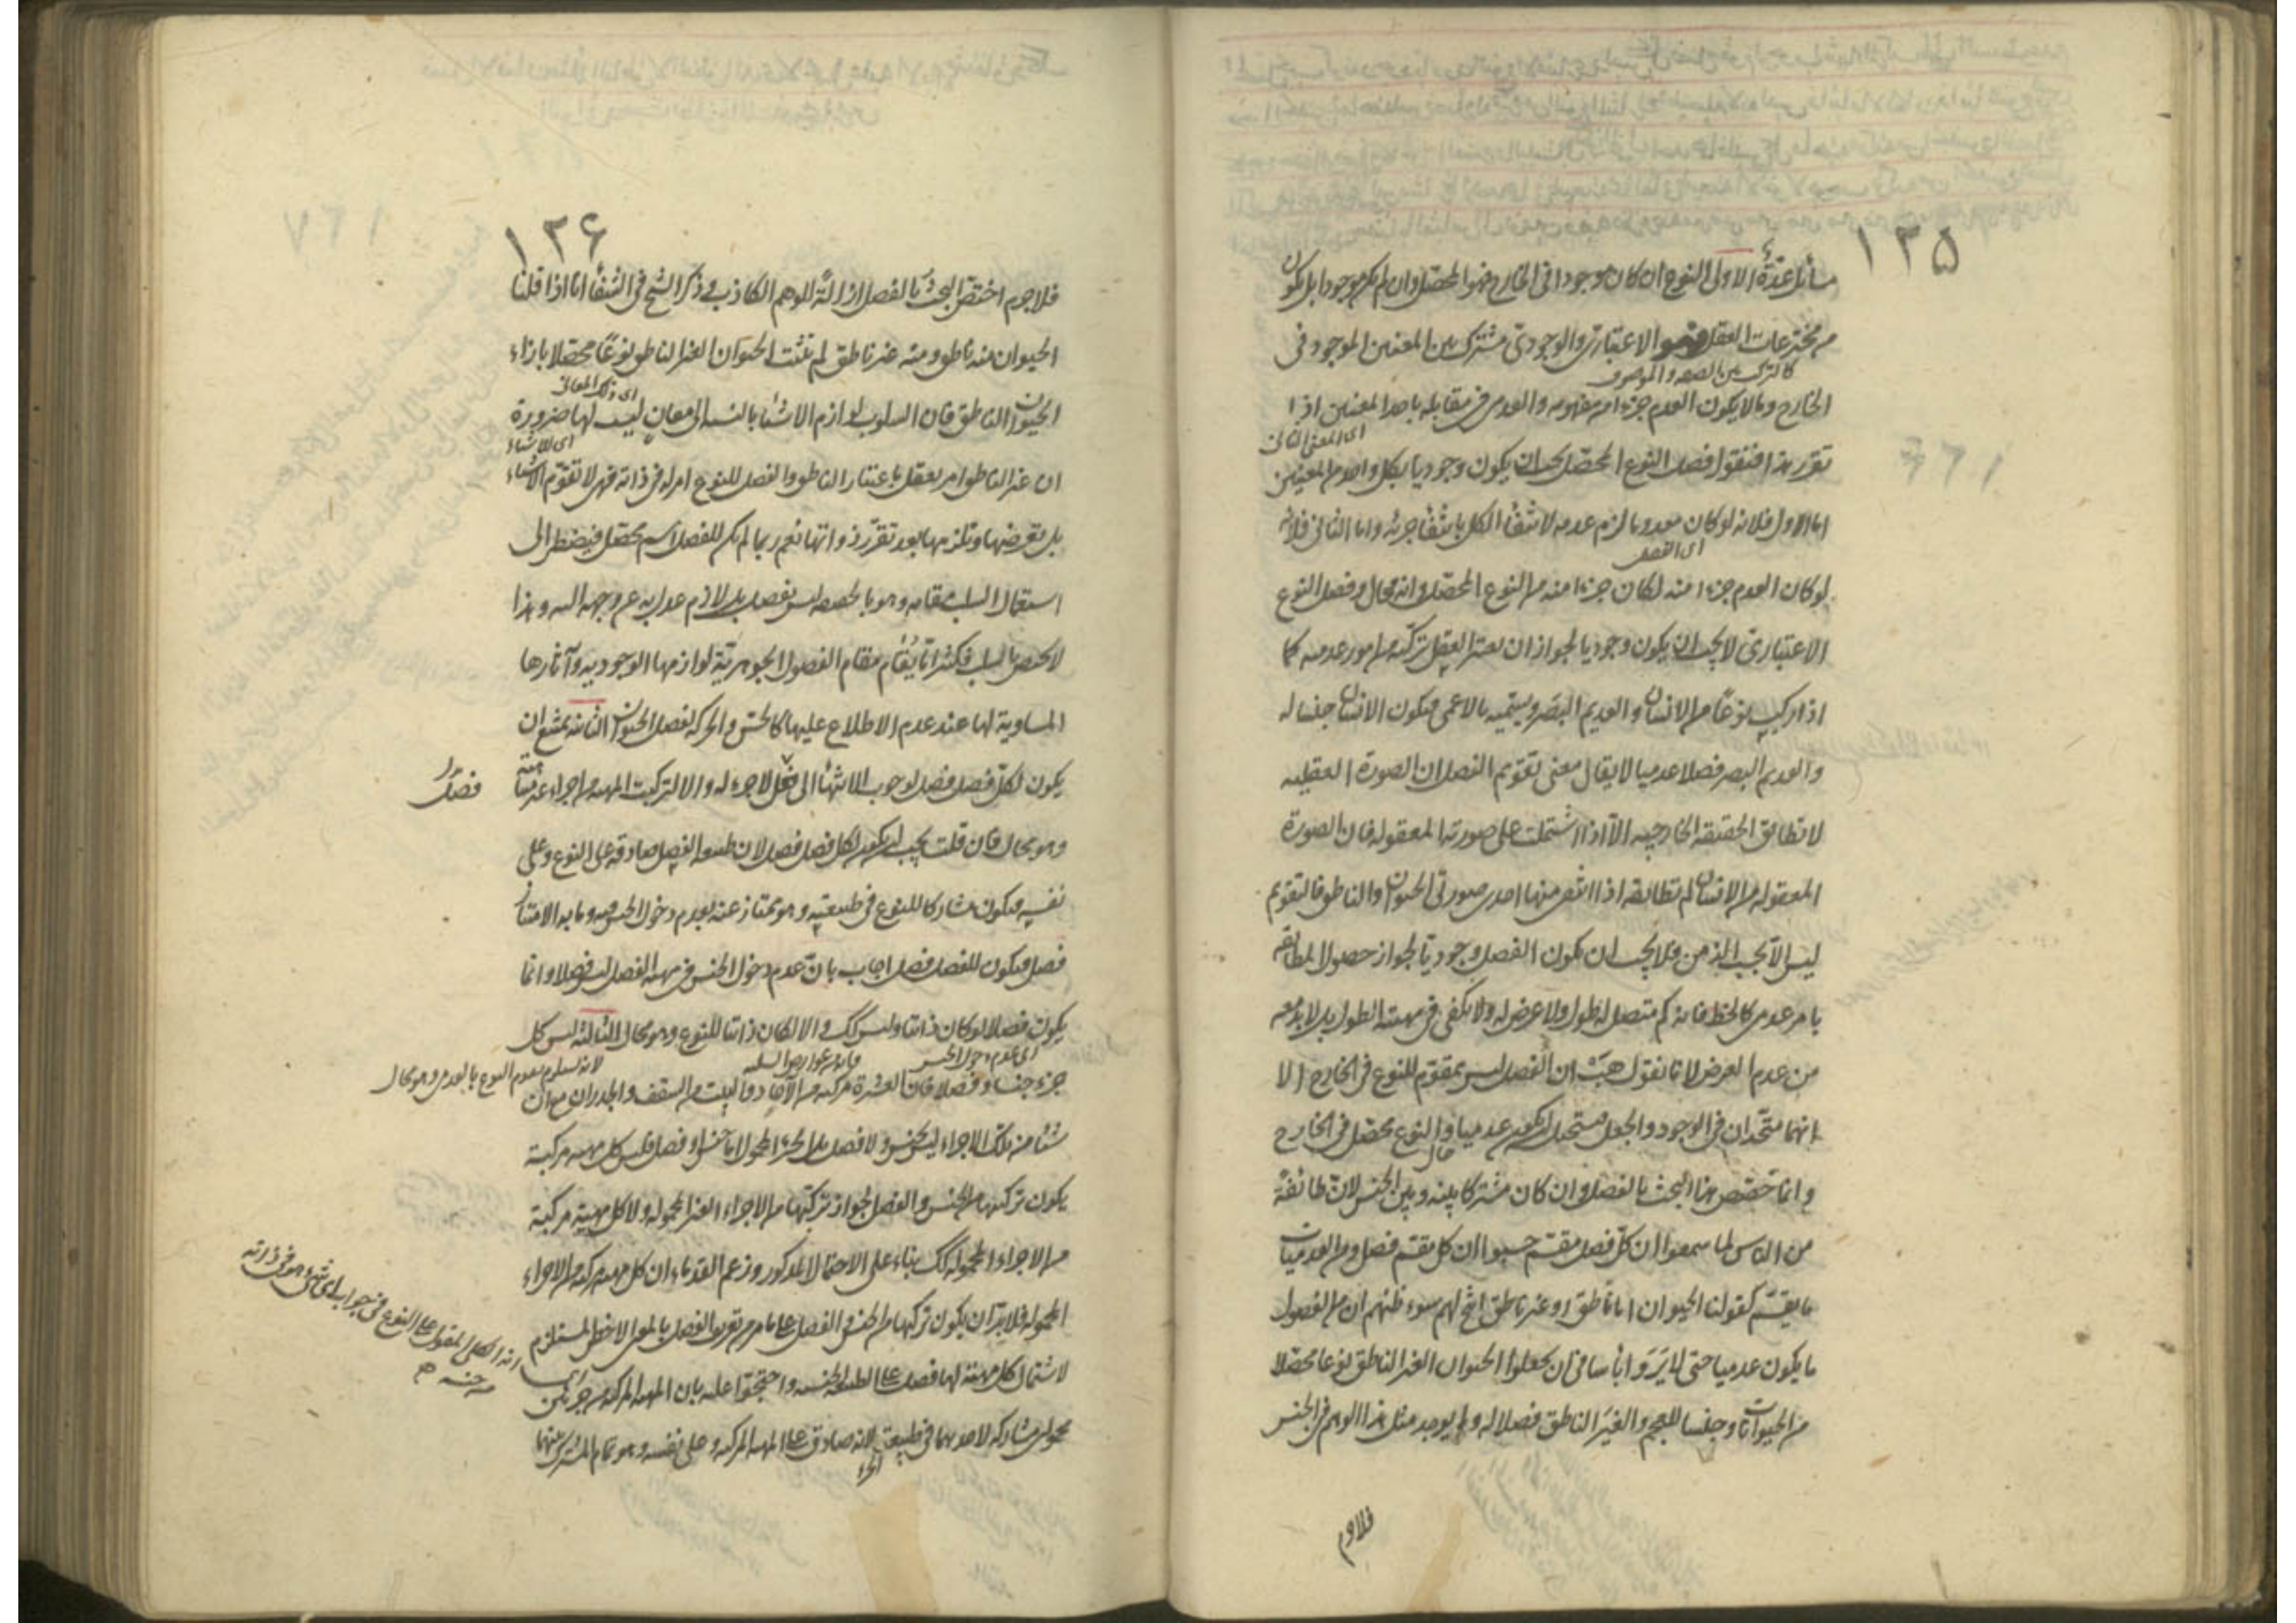 ١٣٥
مسائل عدّة الاولى النوع ان كان موجودا في الخارج فهو المحصّل وان لم يكن موجودا بل يكون
من مخترعات العقل فهو الاعتباري والوجودي مشترك بين المعنيين الموجود في
كالتركيب من الصفة والموصوف
الخارج وما لا يكون العدم جزءا من مفهومه والعدمي في مقابله باحد المعنيين اذا
اى المعنى الثانى
تقرّر هذا فنقول فصل النوع المحصّل يجب ان يكون وجوديا بكل واحد من المعنيين
اما الاول فلانه لو كان معدوما لزم عدمه لانتفاء الكل بانتفاء جزئه واما الثاني فلانه
اى الفصل
لو كان العدم جزءا منه لكان جزءا منه من النوع المحصّل وانه محال وفصل النوع
الاعتباري لا يجب ان يكون وجوديا لجواز ان يعتبر العقل تركّبه من امور عدمية كما
اذا ركب نوعًا من الانسان والعديم البصر ويسمّيه بالاعمى فيكون الانسان جنسا له
والعديم البصر فصلا عدميا لا يقال معنى تقويم الفصل ان الصورة العقلية
لا تطابق الحقيقة الخارجية الاّ اذا اشتملت على صورته المعقولة فان الصورة
المعقولة من الانسان لم تطابقه اذا انتفى منها احدى صورتي الحيوان والناطق فالتقويم
ليس الاّ بحسب الذهن فلا يجب ان يكون الفصل وجوديّا لجواز حصول المطابقة
بامر عدمي كالخط فانه كم متصل له طول ولا عرض له ولا يكفي في مهيته الطول بل لا بد معه
من عدم العرض لانا نقول هَبْ ان الفصل ليس بمقوّم للنوع في الخارج الا
انهما متّحدان في الوجود والجعل فيستحيل ان يكون عدميا والنوع محصّل في الخارج
قال
وانما خصّص هذا البحث بالفصل وان كان مشتركا بينه وبين الجنس لانّ طائفة
من الناس لما سمعوا ان كلّ فصل مقسّم حسبوا ان كل مقسّم فصل ومن العدميات
ما يقسّم كقولنا الحيوان اما ناطق او غير ناطق انتج لهم سوء ظنهم ان من الفصول
ما يكون عدميا حتى لم يَرَوا بأسا في ان يجعلوا الحيوان الغير الناطق نوعا محصّلا
من الحيوانات وجنسا للعجم والغَير الناطق فصلا له ولم يوجد مثل هذا الوهم في الجنس
فلا جرم
١٣٦
فلا جرم اختصّ البحث بالفصل ازالةً للوهم الكاذب وذكر الشيخ في الشفاء انا اذا قلنا
الحيوان منه ناطق ومنه غير ناطق لم تثبت الحيوان الغير الناطق نوعًا محصّلا بازاء
اى ذلك المعانى
الحيوان الناطق فان السلوب لوازم الاشياء بالنسبة الى معانٍ ليست لها ضرورة
اى للاشياء
ان غير الناطق امر يعقل باعتبار الناطق والفصل للنوع امر له في ذاته فهي لا تقوّم الاشياء
بل تعرضها وتلزمها بعد تقرّر ذواتها نعم ربما لم يكن للفصل اسم محصّل فيضطر الى
استعمال السلب مقامه وهو بالحقيقة ليس بفصل بل لازم عدل به عن وجهه اليه وهذا
لا يختص بالسلب فكثيرا ما يُقام مقام الفصول الجوهريّة لوازمها الوجودية وآثارها
المساوية لها عند عدم الاطلاع عليها كالحسّ والحركة لفصل الحيوان الثانية يمتنع ان
يكون لكلّ فصل فصل لوجوب الانتهاء الى فصل لا جزء له والا لتركبت المهية من اجزاء غير متناهية
فصل
وهو محال فان قلت يجب ان يكون لكل فصل فصل لان طبيعة الفصل صادقة على النوع وعلى
نفسه فيكون مشاركا للنوع في طبيعته وهو ممتاز عنه بعدم دخول الجنس فيه وما به الامتياز
فصل فيكون للفصل فصل اجاب بانّ عدم دخول الجنس في مهية الفصل ليس فصلا وانما
يكون فصلا لو كان ذاتيا وليس كك والا لكان ذاتيا للنوع وهو محال الثالثة ليس كل
اى عدم دخول الجنس
لانه يستلزم تقوم النوع بالعدمى وهو محال
جزء جنسا وفصلا فان العشرة مركبة من الآحاد والبيت من السقف والجدران مع ان
شيئا من تلك الاجزاء ليس بجنس ولا فصل بل الجزء المحمول اما جنس او فصل فليس كل مهية مركبة
يكون تركبها من الجنس والفصل لجواز تركّبها من الاجزاء الغير المحمولة ولا كل مهية مركبة
من الاجزاء المحمولة كك بناء على الاحتمال المذكور وزعم القدماء ان كل مهية مركبة من الاجزاء
المحمولة فلا بدّ ان يكون تركبها من الجنس والفصل على ما مر من تعريف الفصل بالمعنى الاخص المستلزم
انه الكلى المقول على النوع فى جواب اى شىء هو فى ذاته
من جنسه
لاشتمال كل مهية لها فصل على الطبيعة الجنسية واحتجّوا عليه بان المهية المركبة من جزئين
محمولين مشاركة لاحدهما في طبيعته لانه صادق على المهية المركبة وعلى نفسه وهو تمام المشترك بينهما
الجزء